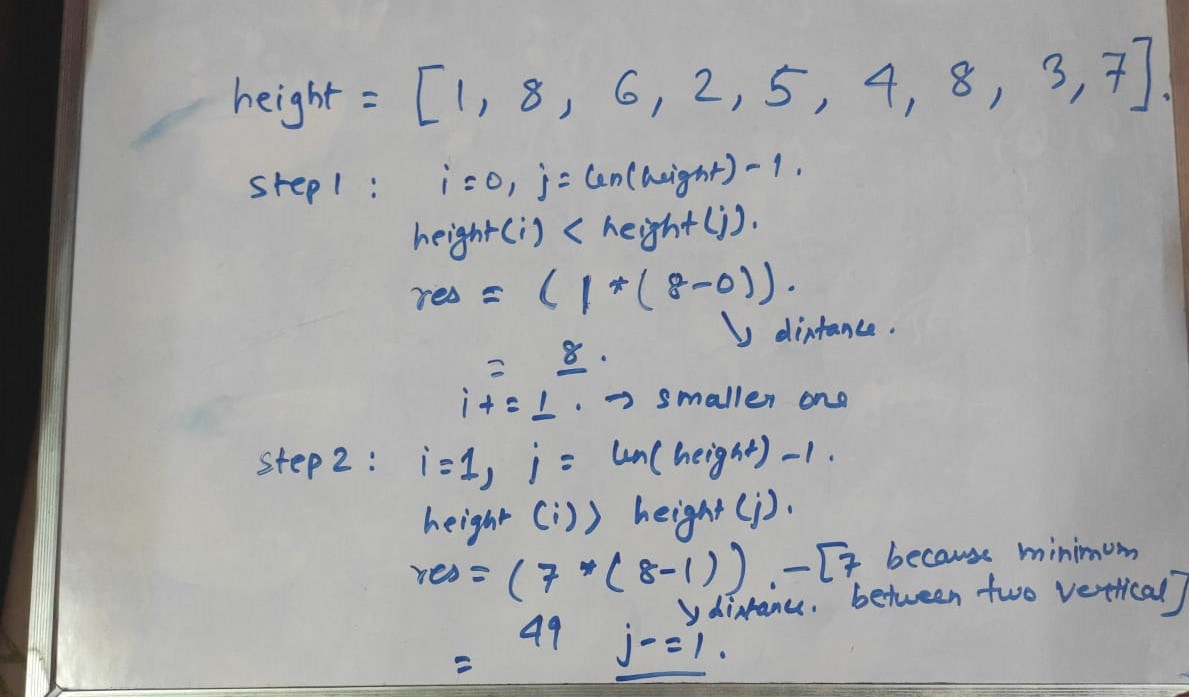 height = [1, 8, 6, 2, 5, 4, 8, 3, 7].
step 1 : i=0, j= len(height)-1.
height(i) < height(j).
res = (1*(8-0)).
↘ distance.
= 8.
i+=1. → smaller one
step 2 : i=1, j= len(height)-1.
height (i)> height (j).
res= (7*(8-1)). -[7 because minimum
↘ distance. between two vertical]
= 49 j-=1.